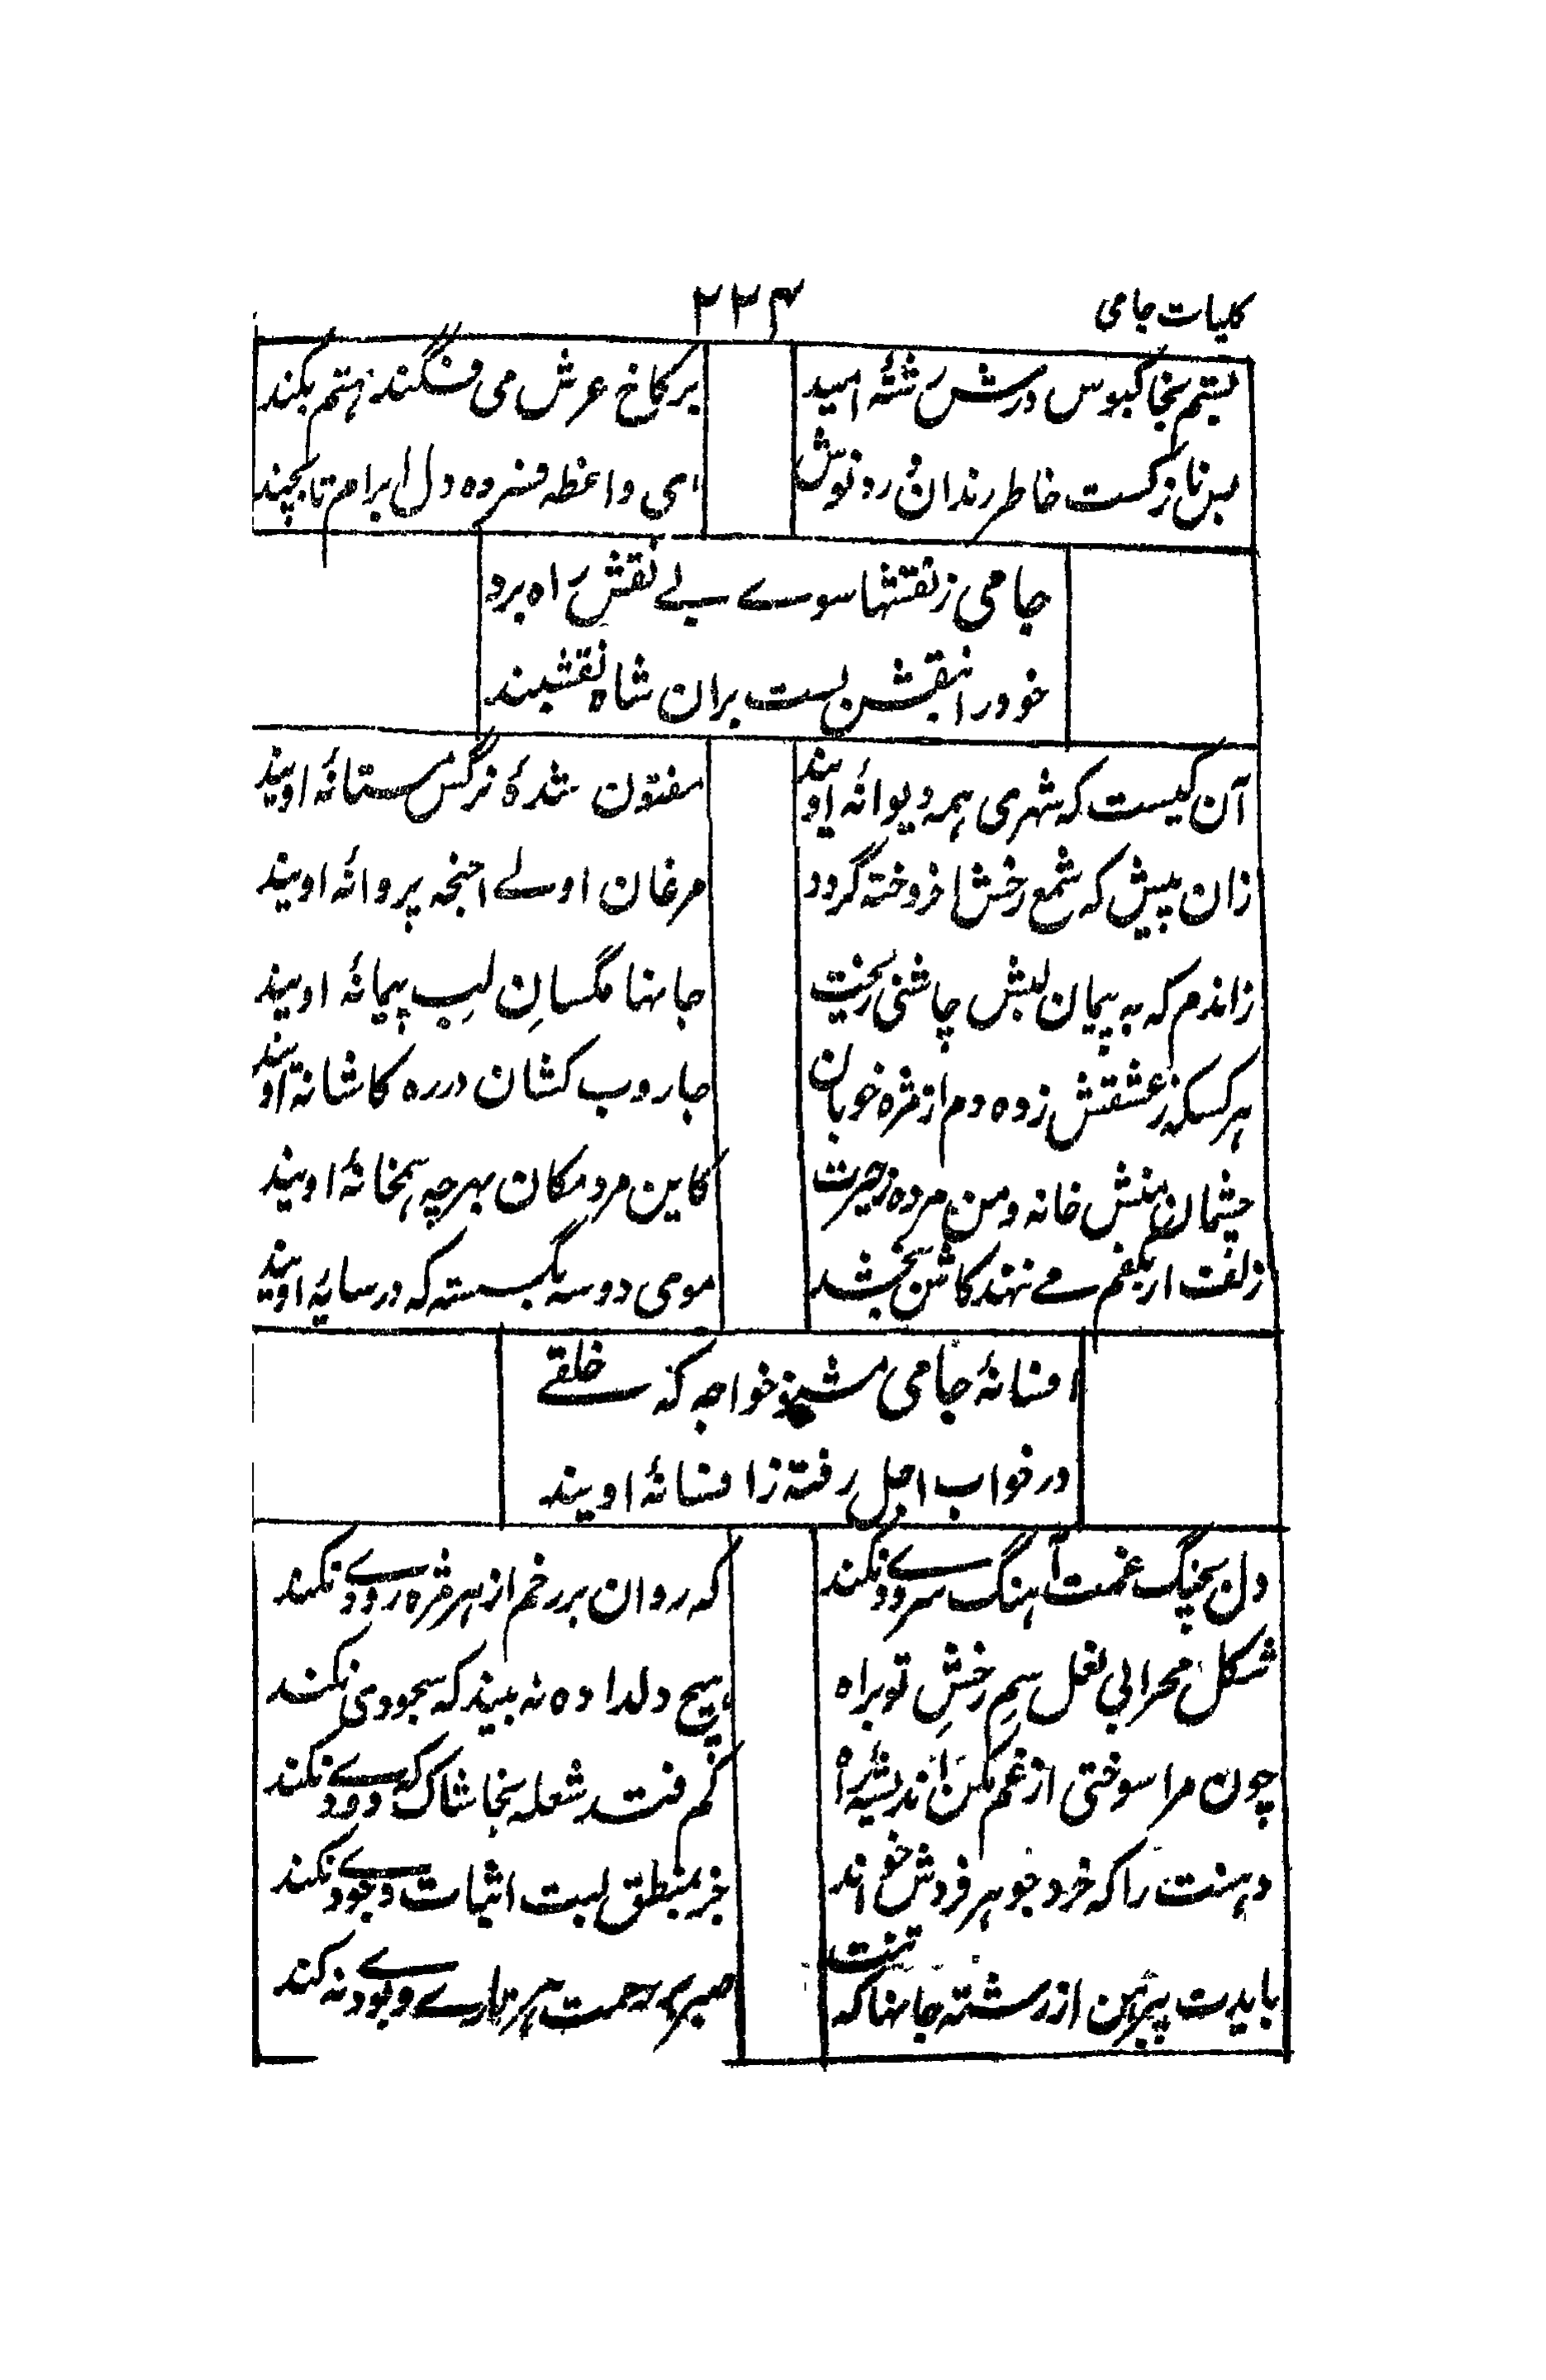 کلیات جامی
۲۲۴
بستم بخاکبوس درش رشتهٔ امید
برکاخ عرش می فگند همتم بکند
بس نازکست خاطر رندان درد نوش
ای واعظ فسرده دل ابرام تا بچند
جامی ز نقشها سوے بے نقش راه برد
خود را بنقش بست بران شاه نقشبند
آن کیست که شهری همه دیوانهٔ اویند
مفتون شدهٔ نرگس مستانهٔ اویند
زان پیش که شمع رخش افروخته گردد
مرغان اولے اجنحه پروانهٔ اویند
زاندم که به پیمان لبش چاشنی ریخت
جانها مگسانِ لبِ پیمانهٔ اویند
هر کسکه ز عشقش زده دم از مژه خوبان
جاروب کشان در ره کاشانهٔ اویند
چشمان منش خانه و من مرده ز حیرت
کاین مردمکان بهر چه همخانهٔ اویند
زلفت ار بکفم مے نهند کاش ببخشد
مومی دوسه بگسسته که در سایهٔ اویند
افسانهٔ جامی مشنو خواجه که خلقے
در خواب اجل رفته ز افسانهٔ اویند
دل بچنگ غمت آهنگ سرودے نکند
که روان بر رخم از هر مژه رودے نکند
شکل محرابی نعل سمِ رخشِ تو براه
هیچ دلداده نه بیند که سجودی نکند
چون مرا سوختی از غم مکن اندیشهٔ آه
کم فتد شعله بخاشاک که دودے نکند
دهنت را که خرد جوهر فردش خواند
جز بمنطق لبت اثبات وجودے نکند
بایدت پیرهن از رشته جانها که تنت
صبر بر زحمت هر تارے و پودے نه کند